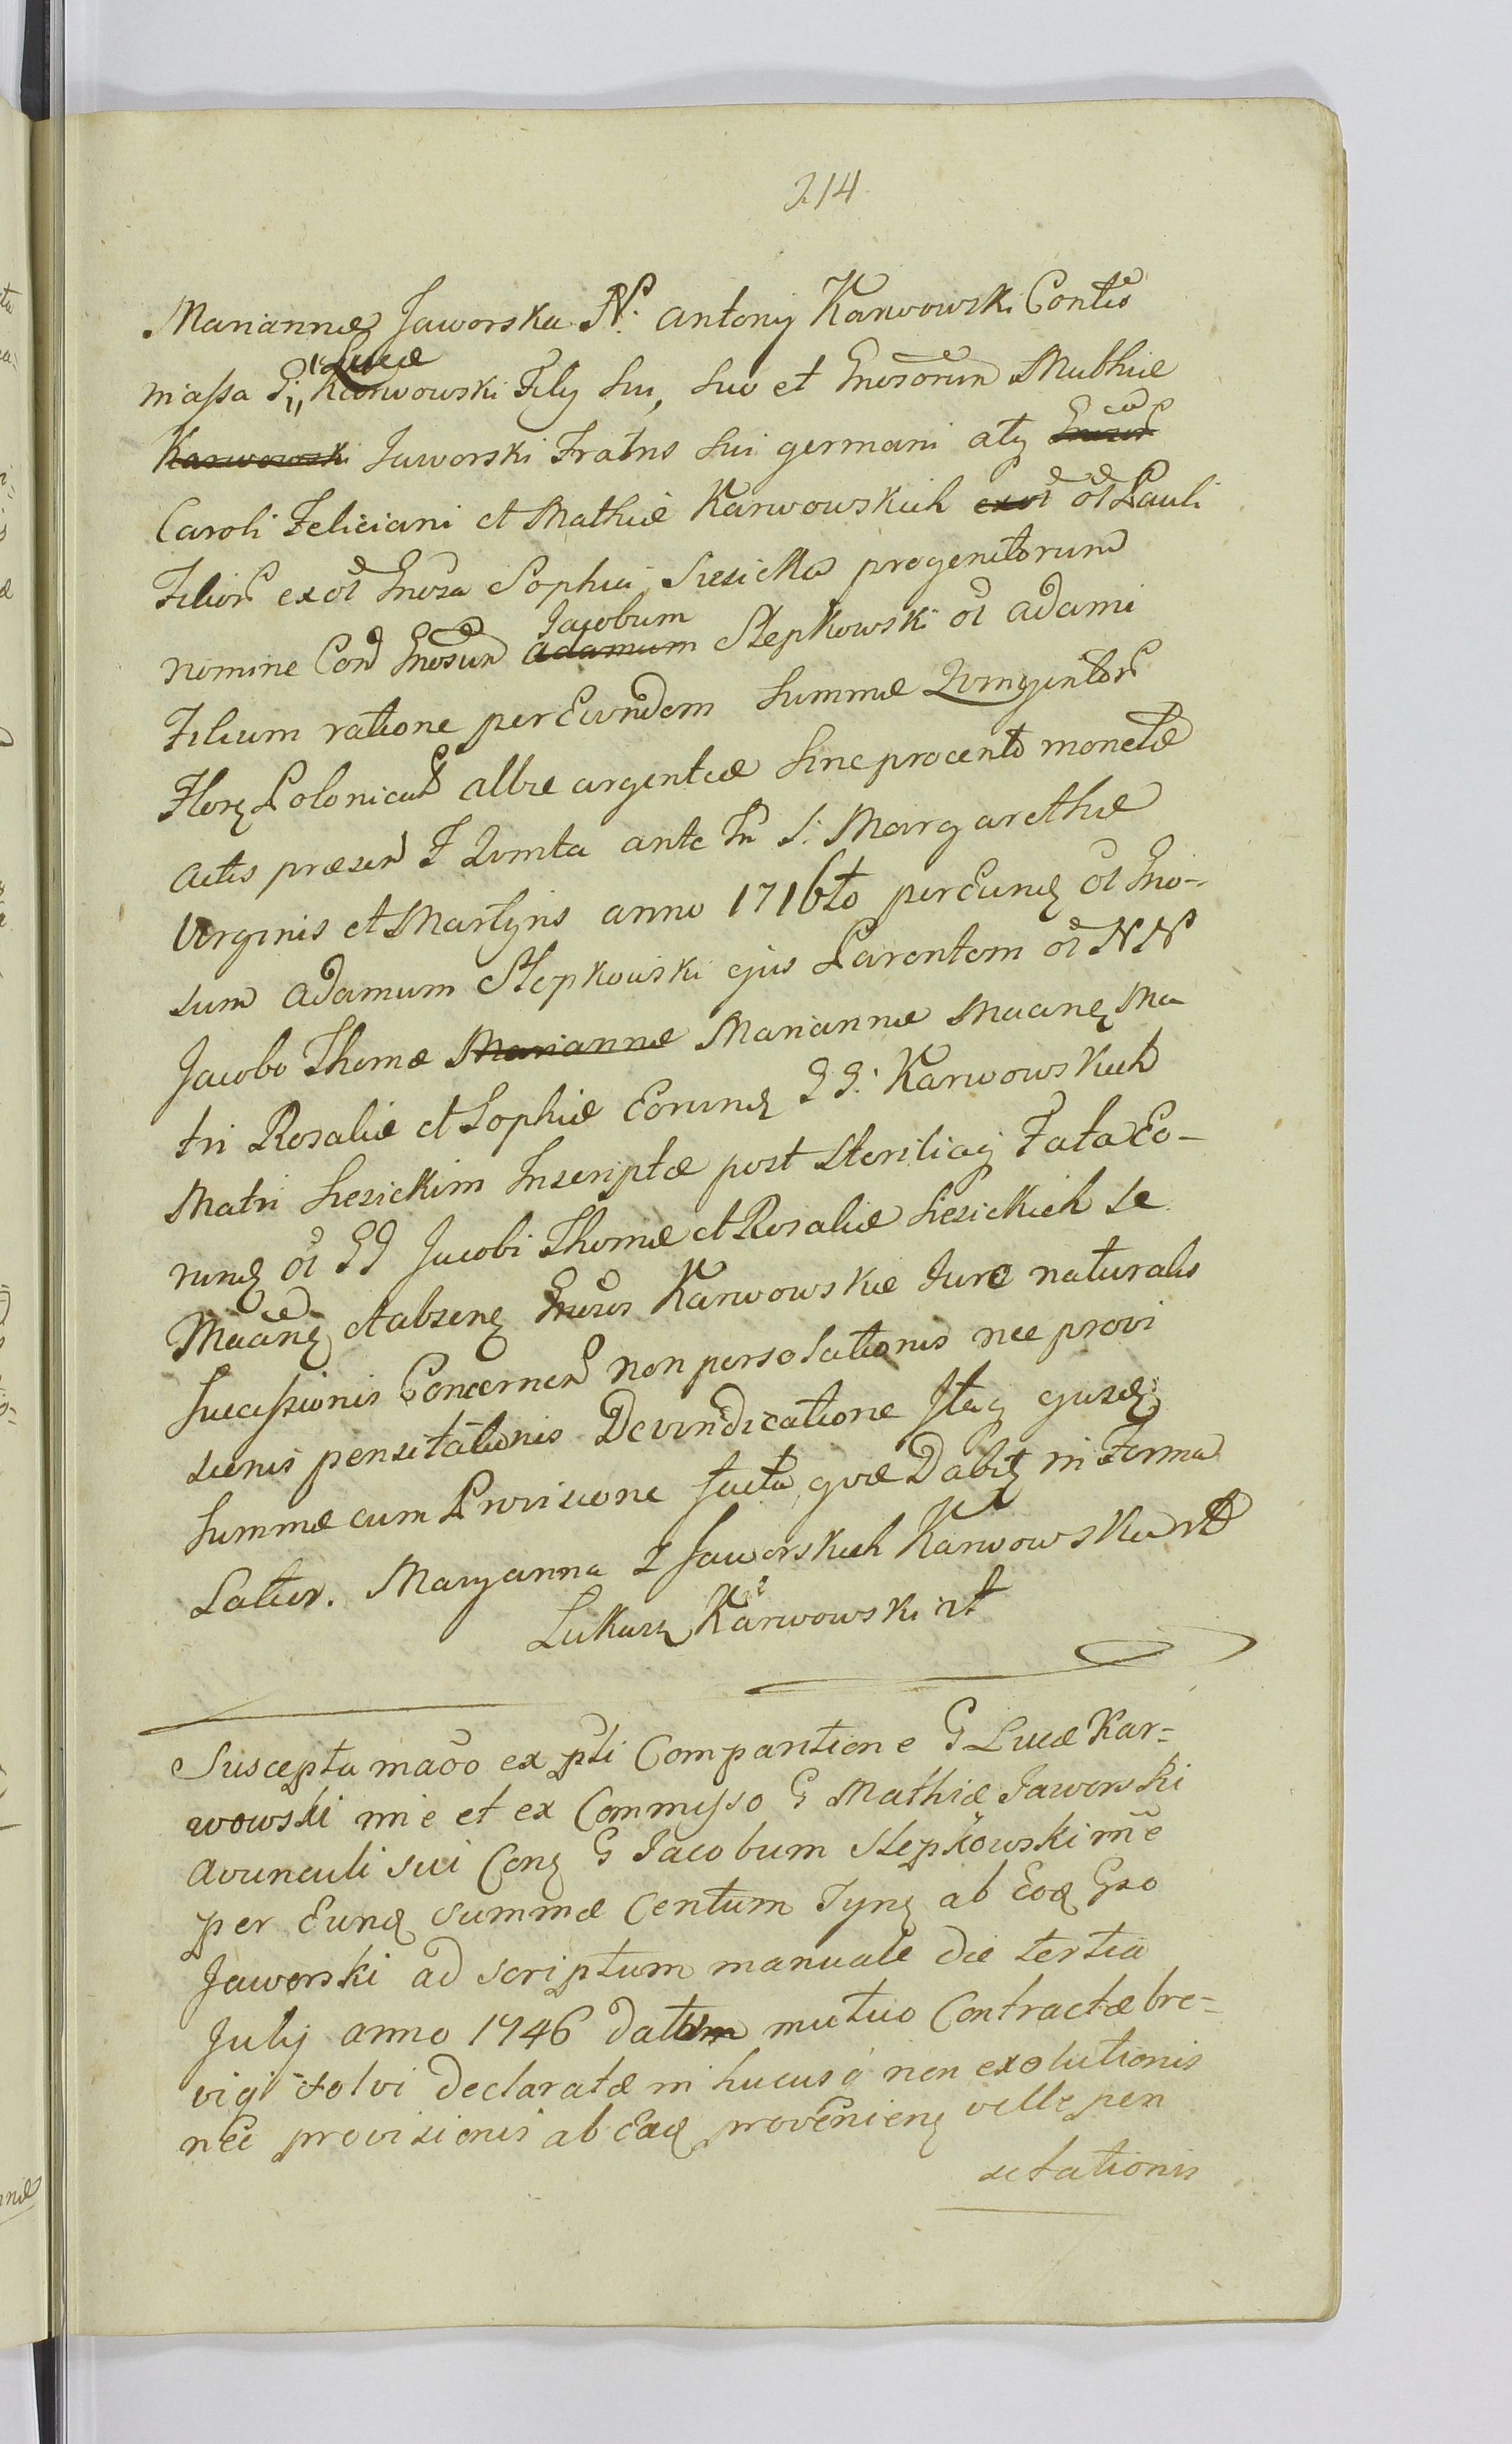 214
Mariannæ Jaworska N. Antonij Karwowski Contis
massa G. Lucæ Karwowski Filij sui, suo et Gnosorum Mathiæ
Karwowski Jaworski Fratris sui germani atq Gnosor
Caroli Feliciani et Mathiæ Karwowskich exol ol Pauli
Filior exol Gnosa Sophia Siesickia progenitorum
nomine Con Gnosum Adamum Jacobum Stepkowski ol Adami
Filium ratione per Eundem Summæ Qvingentor
Flor Polonical albæ argenteæ sine procento monetæ
actis præsen F Qvinta ante Fn S: Margarethæ
Virginis et Martyris anno 1716to per Eunq ol Gno-
sum Adamum Stepkowski ejus Parentem ol NN
Jacobo Thomæ Mariannæ Mariannæ Maanq Ma
tri Rosaliæ et Sophiæ Eorunq GG: Karwowskich
Matri Siesickim Inscriptæ post steriliaq Fata Eo-
runq ol GG Jacobi Thomæ et Rosaliæ Siesickich se
Maanq et absenq Gnosos Karwowskie Jure naturalis
Successionis Concernen non persolationis nec provi
sionis pensitationis Devindicatione Itaq ejusq
Summæ cum Provisione facta, qvæ Dabit in Forma
Latior. Maryanna Z Jaworskich Karwowska mp
Lukasz Karwowski mp
Suscepta mao ex pti Comparitione G Lucæ Kar=
wowski mie et ex Commisso G Mathiæ Jaworski
avunculi sui Conq G Jacobum Stepkowski mie
per Eunq summæ Centum Tynq ab Eoq Gso
Jaworski ad scriptum manuale die tertia
Julij anno 1746 datum mutuo Contractæ bre=
vigi solvi declaratæ in hucusq non exolutionis
nec provisionis ab Eaq provenienq velle pen
sitationis